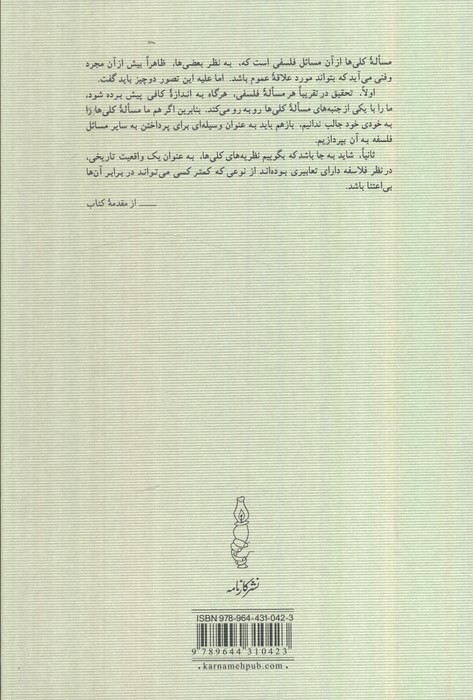 مسألهٔ کلی‌ها از آن مسائل فلسفی است که، به نظر بعضی‌ها، ظاهراً بیش از آن مجرد
وفنی می‌آید که بتواند مورد علاقهٔ عموم باشد. اما علیه این تصور دو چیز باید گفت.
اولاً، تحقیق در تقریباً هر مسألهٔ فلسفی، هرگاه به اندازهٔ کافی پیش برده شود،
ما را با یکی از جنبه‌های مسألهٔ کلی‌ها رو به رو می‌کند. بنابرین اگر هم ما مسألهٔ کلی‌ها را
به خودی خود جالب ندانیم، بازهم باید به عنوان وسیله‌ای برای پرداختن به سایر مسائل
فلسفه به آن بپردازیم.
ثانیاً، شاید به جا باشد که بگوییم نظریه‌های کلی‌ها، به عنوان یک واقعیت تاریخی،
در نظر فلاسفه دارای تعابیری بوده‌اند از نوعی که کمتر کسی می‌تواند در برابر آن‌ها
بی‌اعتنا باشد.
ــــــ از مقدمهٔ کتاب
نشر کارنامه
ISBN 978-964-431-042-3
9 789644 310423
karnamehpub.com